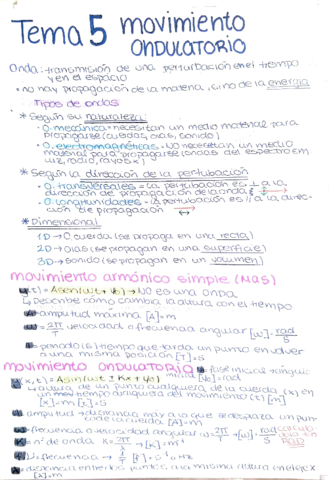 Tema 5 movimiento
ONDULATORIO
Onda: transmisión de una perturbación en el tiempo
y en el espacio
• no hay propagación de la materia, si no de la energía
Tipos de ondas
* Según su naturaleza:
• O. mecánica = necesitan un medio material para
propagarse (cuerdas, olas, sonido)
• O. electromagnéticas = NO necesitan un medio
material para propagarse (ondas del espectro em
luz, radio, rayos x)
* Según la dirección de la perturbación
• O. transversales = la perturbación es ⊥ a la
dirección de propagación de la onda
• O. longitudinales = la perturbación es // a la direc-
ción de propagación
* Dimensional
1D → Cuerda (se propaga en una recta)
2D → olas (se propagan en una superficie)
3D → sonido (se propaga en un volumen)
movimiento armónico simple (MAS)
(t) = A sen(ωt + φ₀) → NO es una ONDA
↳ Describe cómo cambia la altura con el tiempo
amplitud máxima [A] = m
= 2π/T velocidad o frecuencia angular [ω] = rad/s
periodo (s) tiempo que tarda un punto en volver
a una misma posición [T] = s
fase inicial
movimiento ONDULATORIO
[φ₀] = rad
(x, t) = A sen(ωt ± Kx + φ₀)
↳ altura de un punto cualquiera de la cuerda (x) en
un tiempo cualquiera del movimiento (t) [m]
[x] = m [t] = s
amplitud → distancia máx a lo que se desplaza un pun-
to de la cuerda [A] = m
frecuencia o velocidad angular ω = 2π/T → [ω] = rad/s
nº de onda K = 2π/λ → [K] = m⁻¹
frecuencia → 1/T [f] = s⁻¹ o Hz
distancia entre dos puntos a la misma altura en el eje x
[λ] = m